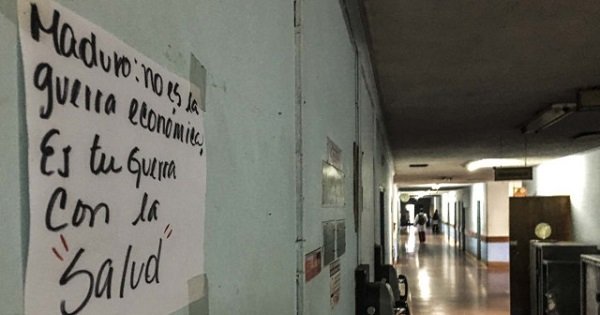 Maduro: no es la
guerra económica,
Es tu Guerra
Con la
"Salud"